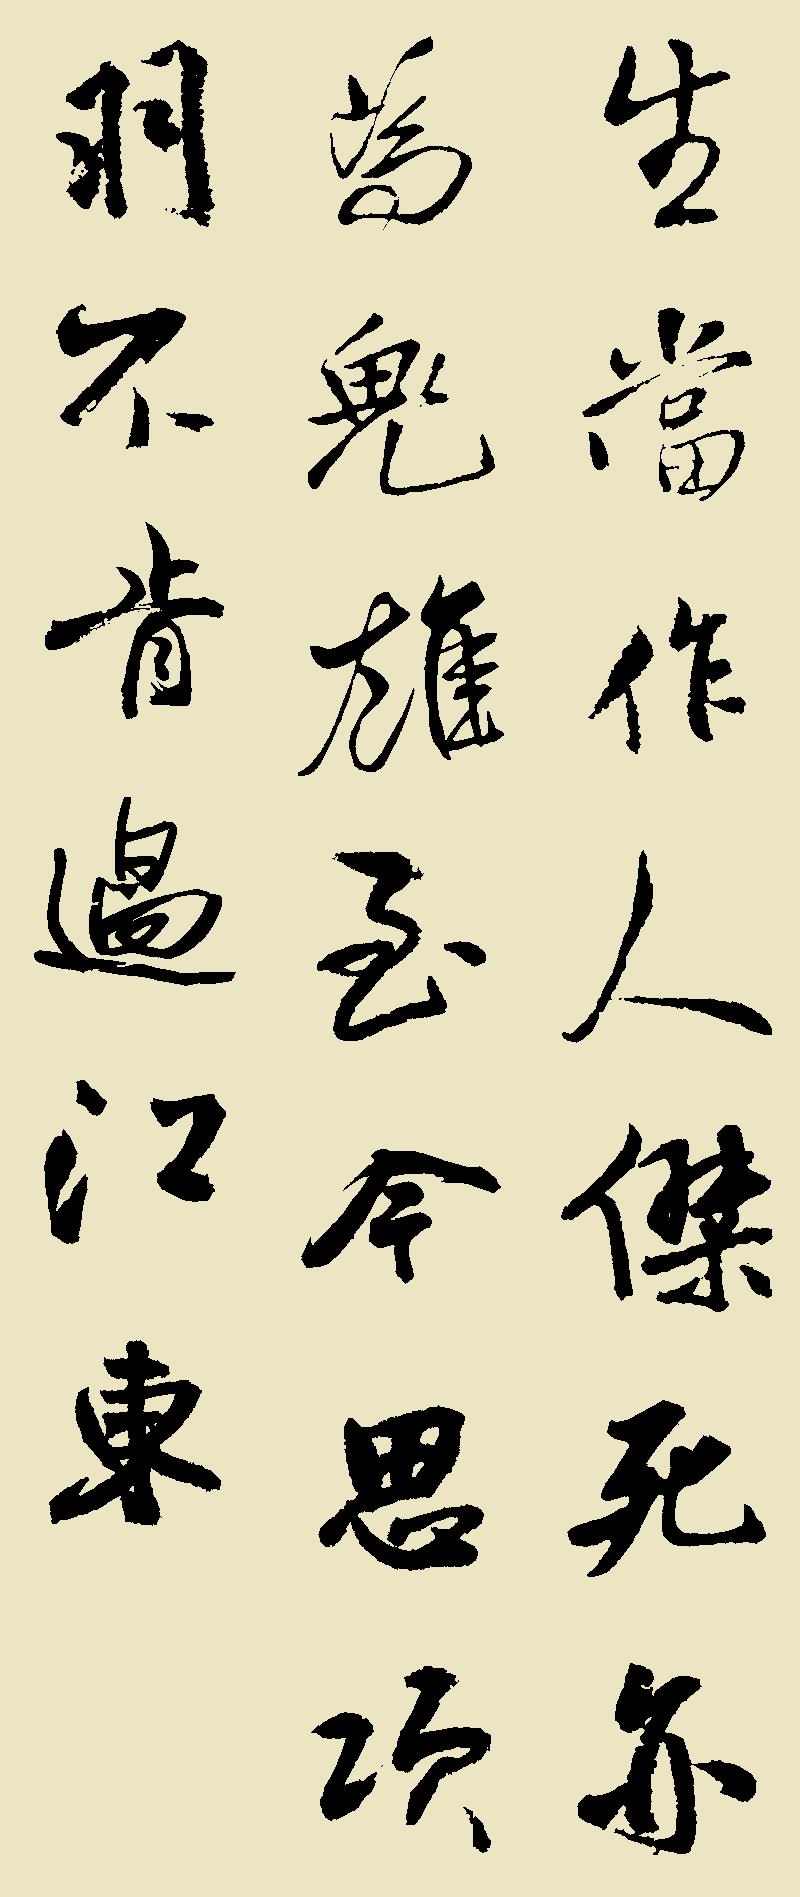 生當作人傑死亦
為鬼雄至今思項
羽不肯過江東